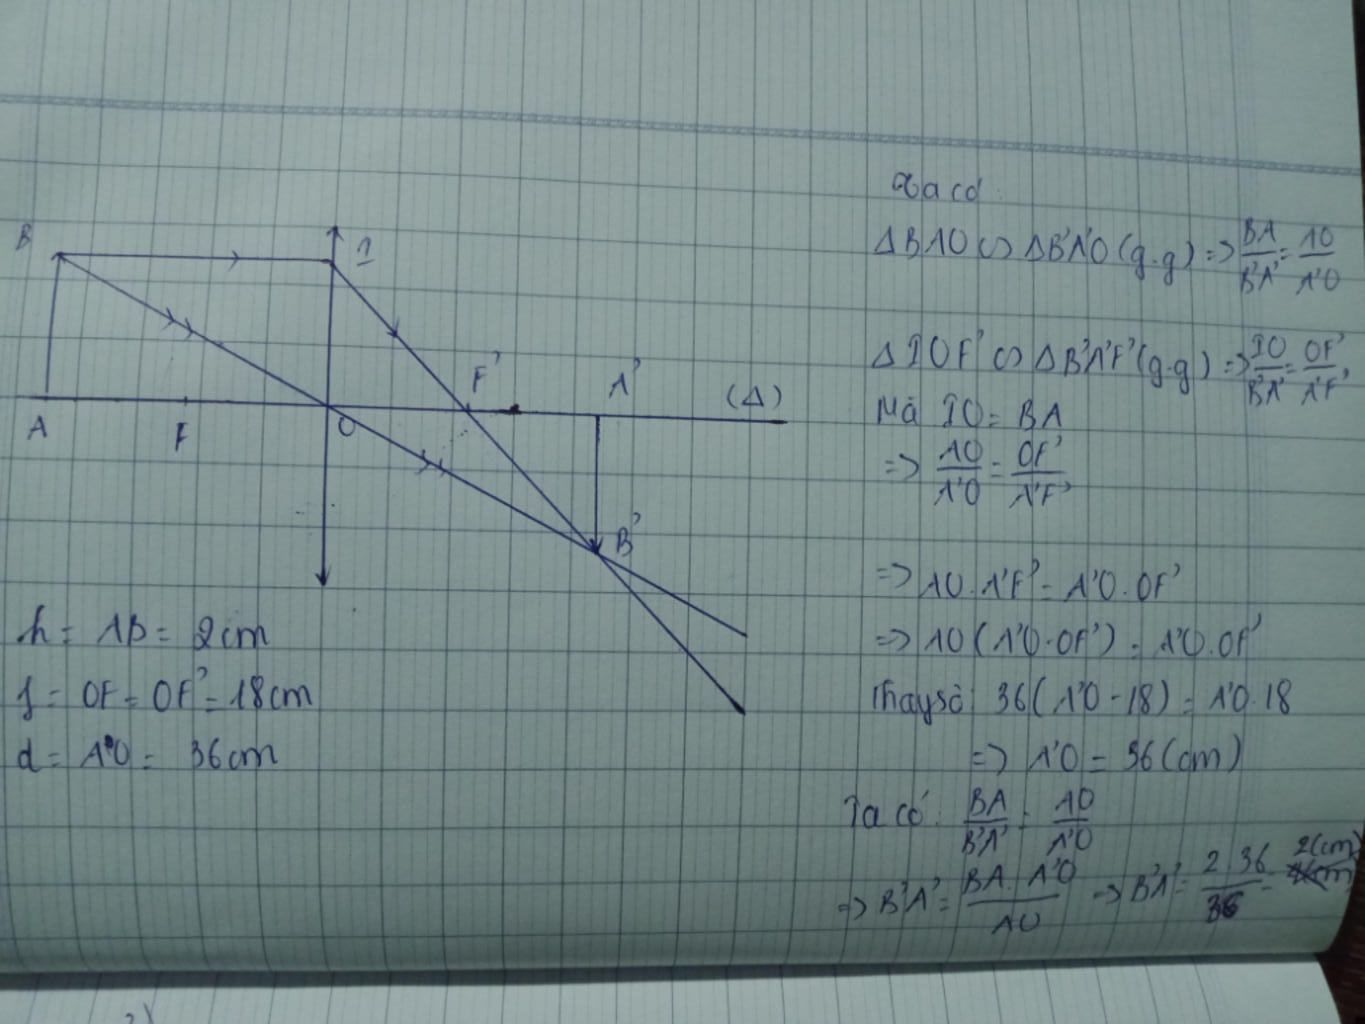 B
I
F'
A'
(Δ)
A
F
O
B'
h = AB = 2cm
f = OF = OF' = 18cm
d = A'O = 36cm
Ta có:
ΔBAO ∽ ΔB'A'O (g.g) => BA/B'A' = AO/A'O
ΔIOF' ∽ ΔB'A'F' (g.g) => IO/B'A' = OF'/A'F'
Mà IO = BA
=> AO/A'O = OF'/A'F'
=> AO.A'F' = A'O.OF'
=> AO(A'O-OF') = A'O.OF'
Thay số: 36(A'O - 18) = A'O.18
=> A'O = 36(cm)
Ta có: BA/B'A' = AO/A'O
=> B'A' = BA.A'O/AO => B'A' = 2.36/36 = 2(cm)